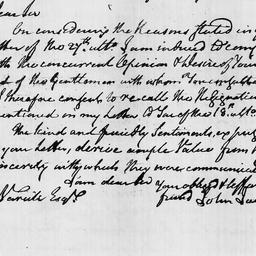 Dear Sir
On considering the Reasons stated in y
ter of the 27th ulto. I am induced to com
th the concurrent Opinion & desire of Your
st of the Gentlemen with whom You consulted
I therefore consent to recall the Resignation
entioned in my Letter to You of the 8th ulto.
The kind and friendly Sentiments, exp
your Letter, derive ample Value from t
sincerity with which they were communica
I am dear Sir Your obliged & affec
Esqr. friend John